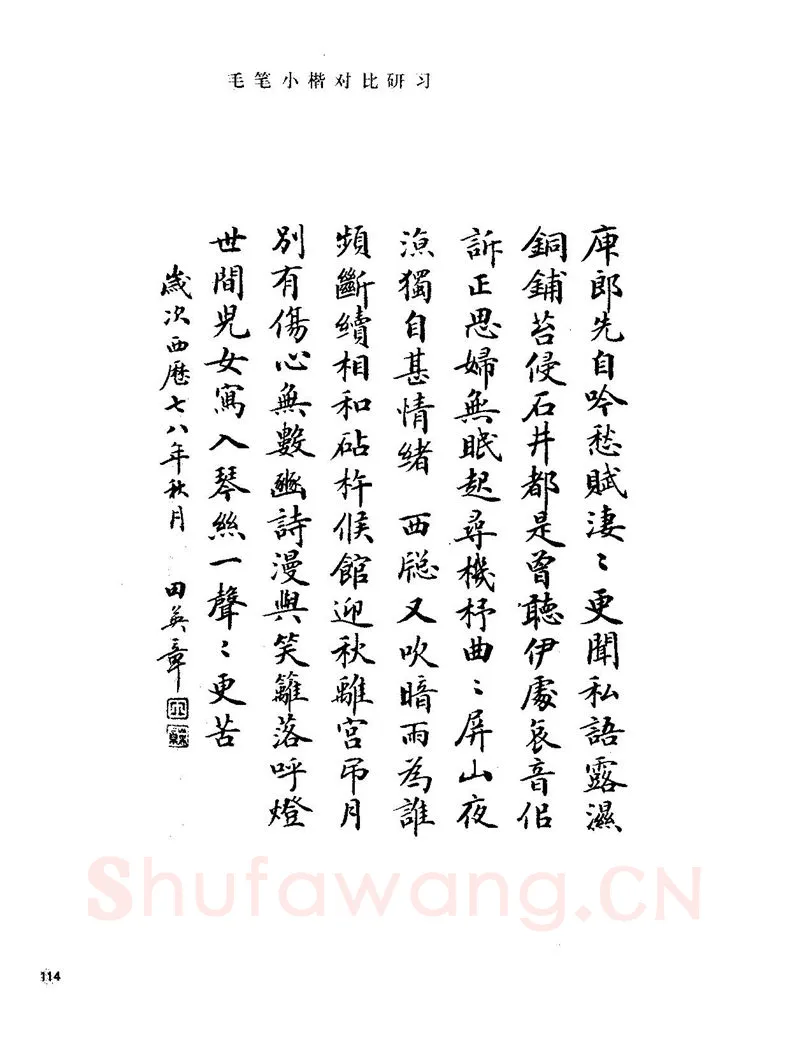 毛笔小楷对比研习
庾郎先自吟愁賦淒〻更聞私語露濕
銅鋪苔侵石井都是曾聽伊處哀音佀
訴正思婦無眠起尋機杼曲〻屏山夜
涼獨自甚情緒 西牕又吹暗雨為誰
頻斷續相和砧杵候館迎秋離宮吊月
別有傷心無數豳詩漫與笑籬落呼燈
世間兒女寫入琴絲一聲〻更苦
歲次西曆七八年秋月 田英章
Shufawang.CN
114